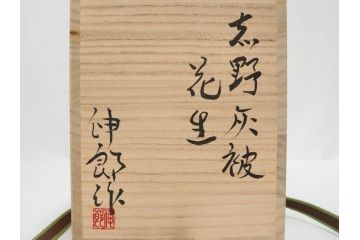 志野灰被
花生
紳郎作